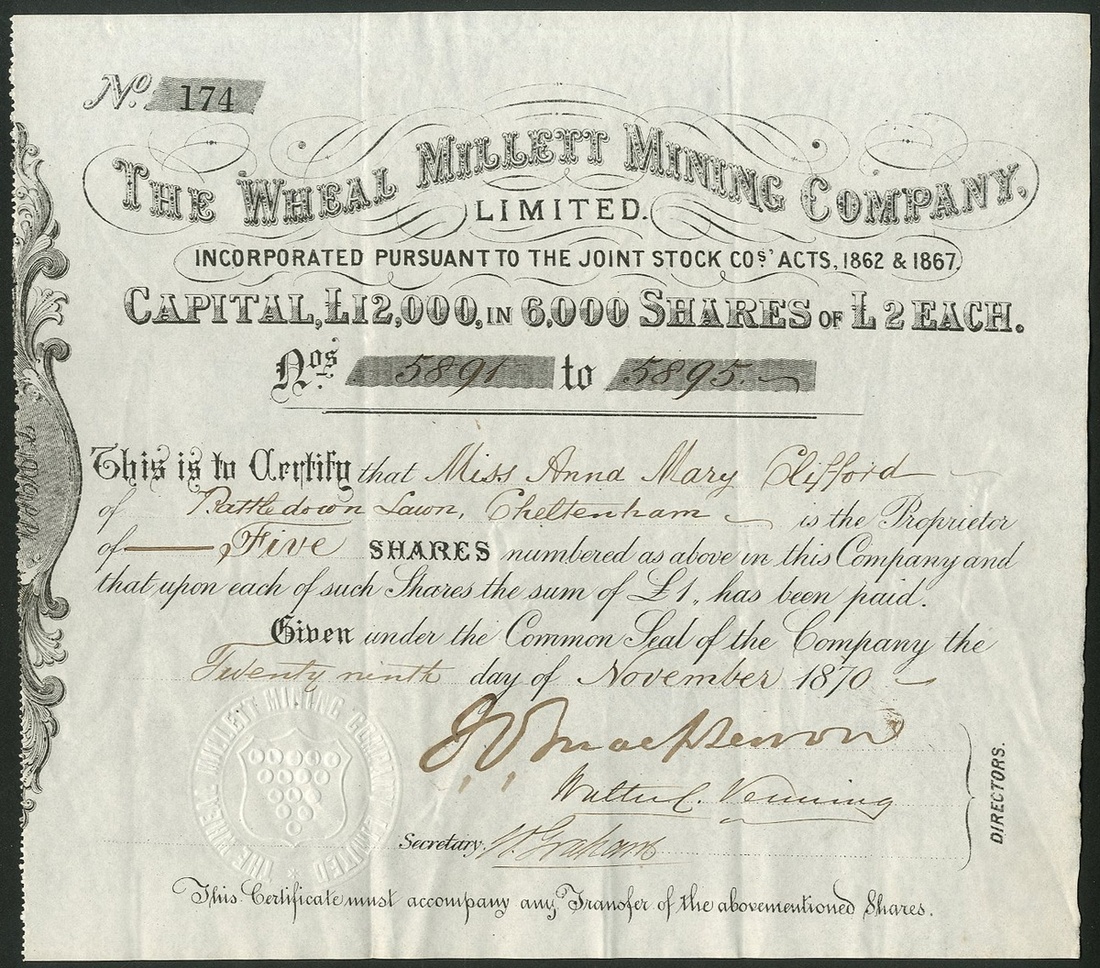 No. 174
THE WHEAL MILLETT MINING COMPANY,
LIMITED.
INCORPORATED PURSUANT TO THE JOINT STOCK COS' ACTS, 1862 & 1867,
CAPITAL, £12,000, IN 6,000 SHARES OF £2 EACH.
Nos 5891 to 5895.
This is to Certify that Miss Anna Mary Clifford
of Battledown Lawn, Cheltenham is the Proprietor
of Five SHARES numbered as above in this Company and
that upon each of such Shares the sum of £1,, has been paid.
Given under the Common Seal of the Company the
Twenty ninth day of November 1870
Macpherson
Walter C. Venning
DIRECTORS.
Secretary, Graham
THE WHEAL MILLETT MINING COMPANY LIMITED
This Certificate must accompany any Transfer of the abovementioned Shares.